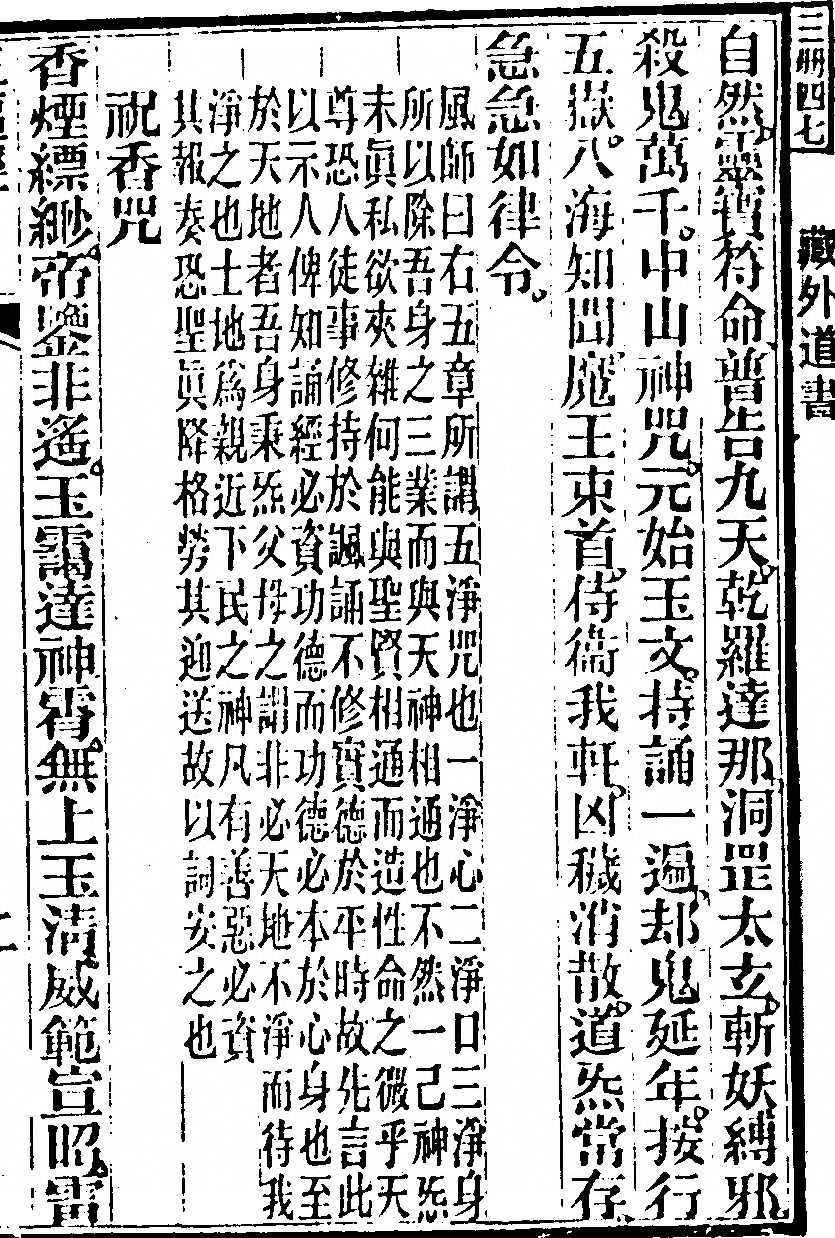 三册四七
藏外道書
自然。靈寶符命。普告九天。乾羅達那。洞罡太玄。斬妖縛邪。
殺鬼萬千。中山神咒。元始玉文。持誦一遍。却鬼延年。按行
五嶽。八海知聞。魔王束首。侍衞我軒。凶穢消散。道炁常存。
急急如律令。
風師曰右五章所謂五淨咒也一淨心二淨口三淨身
所以除吾身之三業而與天神相通也不然一己神炁
未眞私欲夾雜何能與聖賢相通而造性命之微乎天
尊恐人徒事修持於諷誦不修實德於平時故先言此
以示人俾知誦經必資功德而功德必本於心身也至
於天地者吾身秉炁父母之謂非必天地不淨而待我
淨之也土地爲親近下民之神凡有善惡必資
其報奏恐聖眞降格勞其迎送故以詞安之也
祝香咒
香煙縹緲。帝鑒非遙。玉靄達神霄。無上玉清威範宣昭。雷